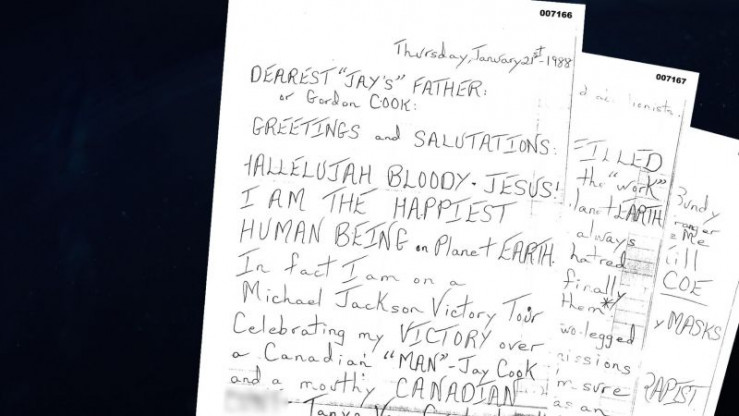 007166
Thursday, January 21st-1988
DEAREST "JAY'S" FATHER:
or Gordon COOK:
GREETINGS and SALUTATIONS:
HALLELUJAH BLOODY-JESUS!
I AM THE HAPPIEST
HUMAN BEING on Planet EARTH.
In fact I am on a
Michael Jackson Victory Tour
Celebrating my VICTORY over
a Canadian "MAN"-Jay Cook
and a mouthy CANADIAN
Tanya
007167
FILLED
the "work"
EARTH
always
hatred
finally
them*
legged
sure
as an
Bundy
Me
COE
MASKS
RAPIST